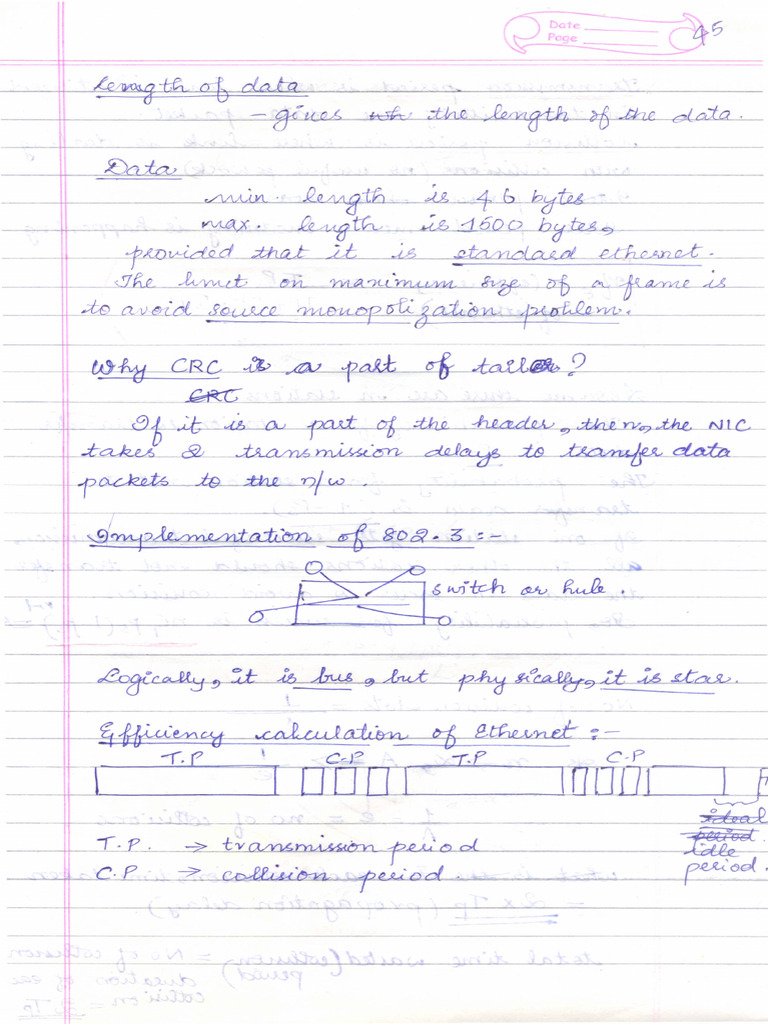 Date
Page 45
Length of data
- gives the length of the data.
Data
min. length is 46 bytes
max. length is 1500 bytes,
provided that it is standard ethernet.
The limit on maximum size of a frame is
to avoid source monopolization problem.
Why CRC is a part of tailer?
CRC
If it is a part of the header, then, the NIC
takes 2 transmission delays to transfer data
packets to the n/w.
Implementation of 802.3:-
switch or hub.
Logically, it is bus, but physically, it is star.
Efficiency calculation of Ethernet :-
T.P C.P T.P C.P
ideal
period.
idle
period.
T.P. → transmission period
C.P → collision period.